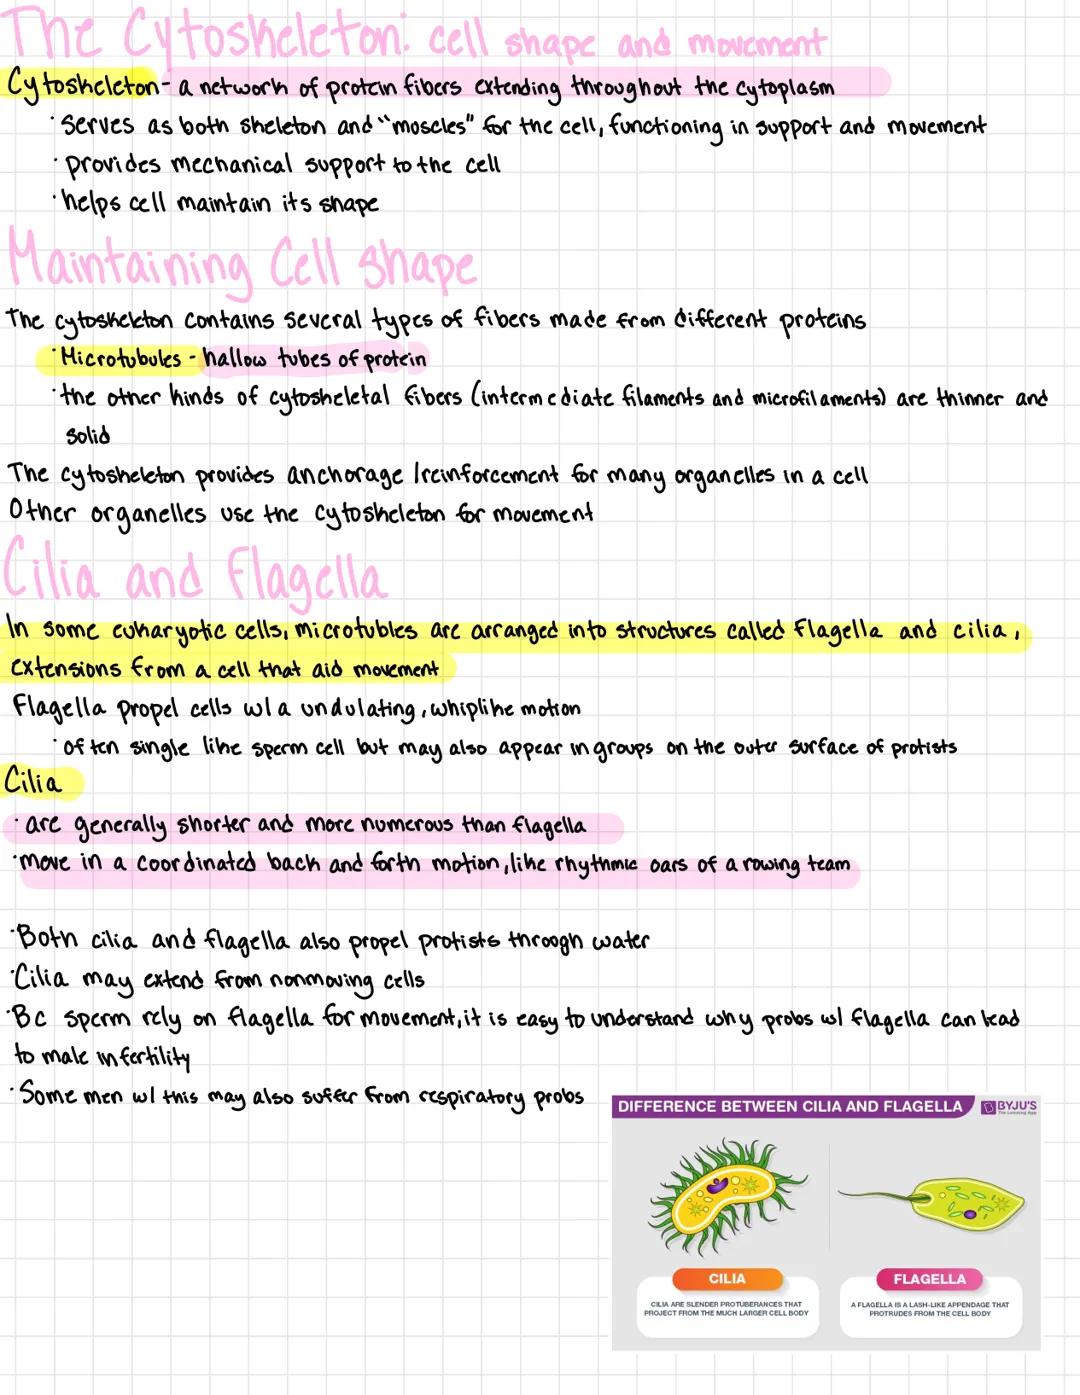 The Cytoskeleton: cell shape and movement
Cytoskeleton - a network of protein fibers extending throughout the cytoplasm
· serves as both skeleton and "moscles" for the cell, functioning in support and movement
· provides mechanical support to the cell
· helps cell maintain its shape
Maintaining Cell Shape
The cytoskeleton contains several types of fibers made from different proteins
· Microtubules - hallow tubes of protein
· the other kinds of cytoskeletal fibers (intermediate filaments and microfilaments) are thinner and
solid
The cytoskeleton provides anchorage /reinforcement for many organelles in a cell
Other organelles use the cytoskeleton for movement
Cilia and Flagella
In some eukaryotic cells, microtubles are arranged into structures called flagella and cilia,
extensions from a cell that aid movement
Flagella propel cells w/ a undulating, whiplike motion
· often single like sperm cell but may also appear in groups on the outer surface of protists
Cilia
· are generally shorter and more numerous than flagella
· move in a coordinated back and forth motion, like rhythmic oars of a rowing team
· Both cilia and flagella also propel protists through water
· Cilia may extend from nonmoving cells
· Bc sperm rely on flagella for movement, it is easy to understand why probs w/ flagella can lead
to male infertility
· Some men w/ this may also suffer from respiratory probs
DIFFERENCE BETWEEN CILIA AND FLAGELLA
BYJU'S
The Learning App
CILIA
FLAGELLA
CILIA ARE SLENDER PROTUBERANCES THAT
PROJECT FROM THE MUCH LARGER CELL BODY
A FLAGELLA IS A LASH-LIKE APPENDAGE THAT
PROTRUDES FROM THE CELL BODY